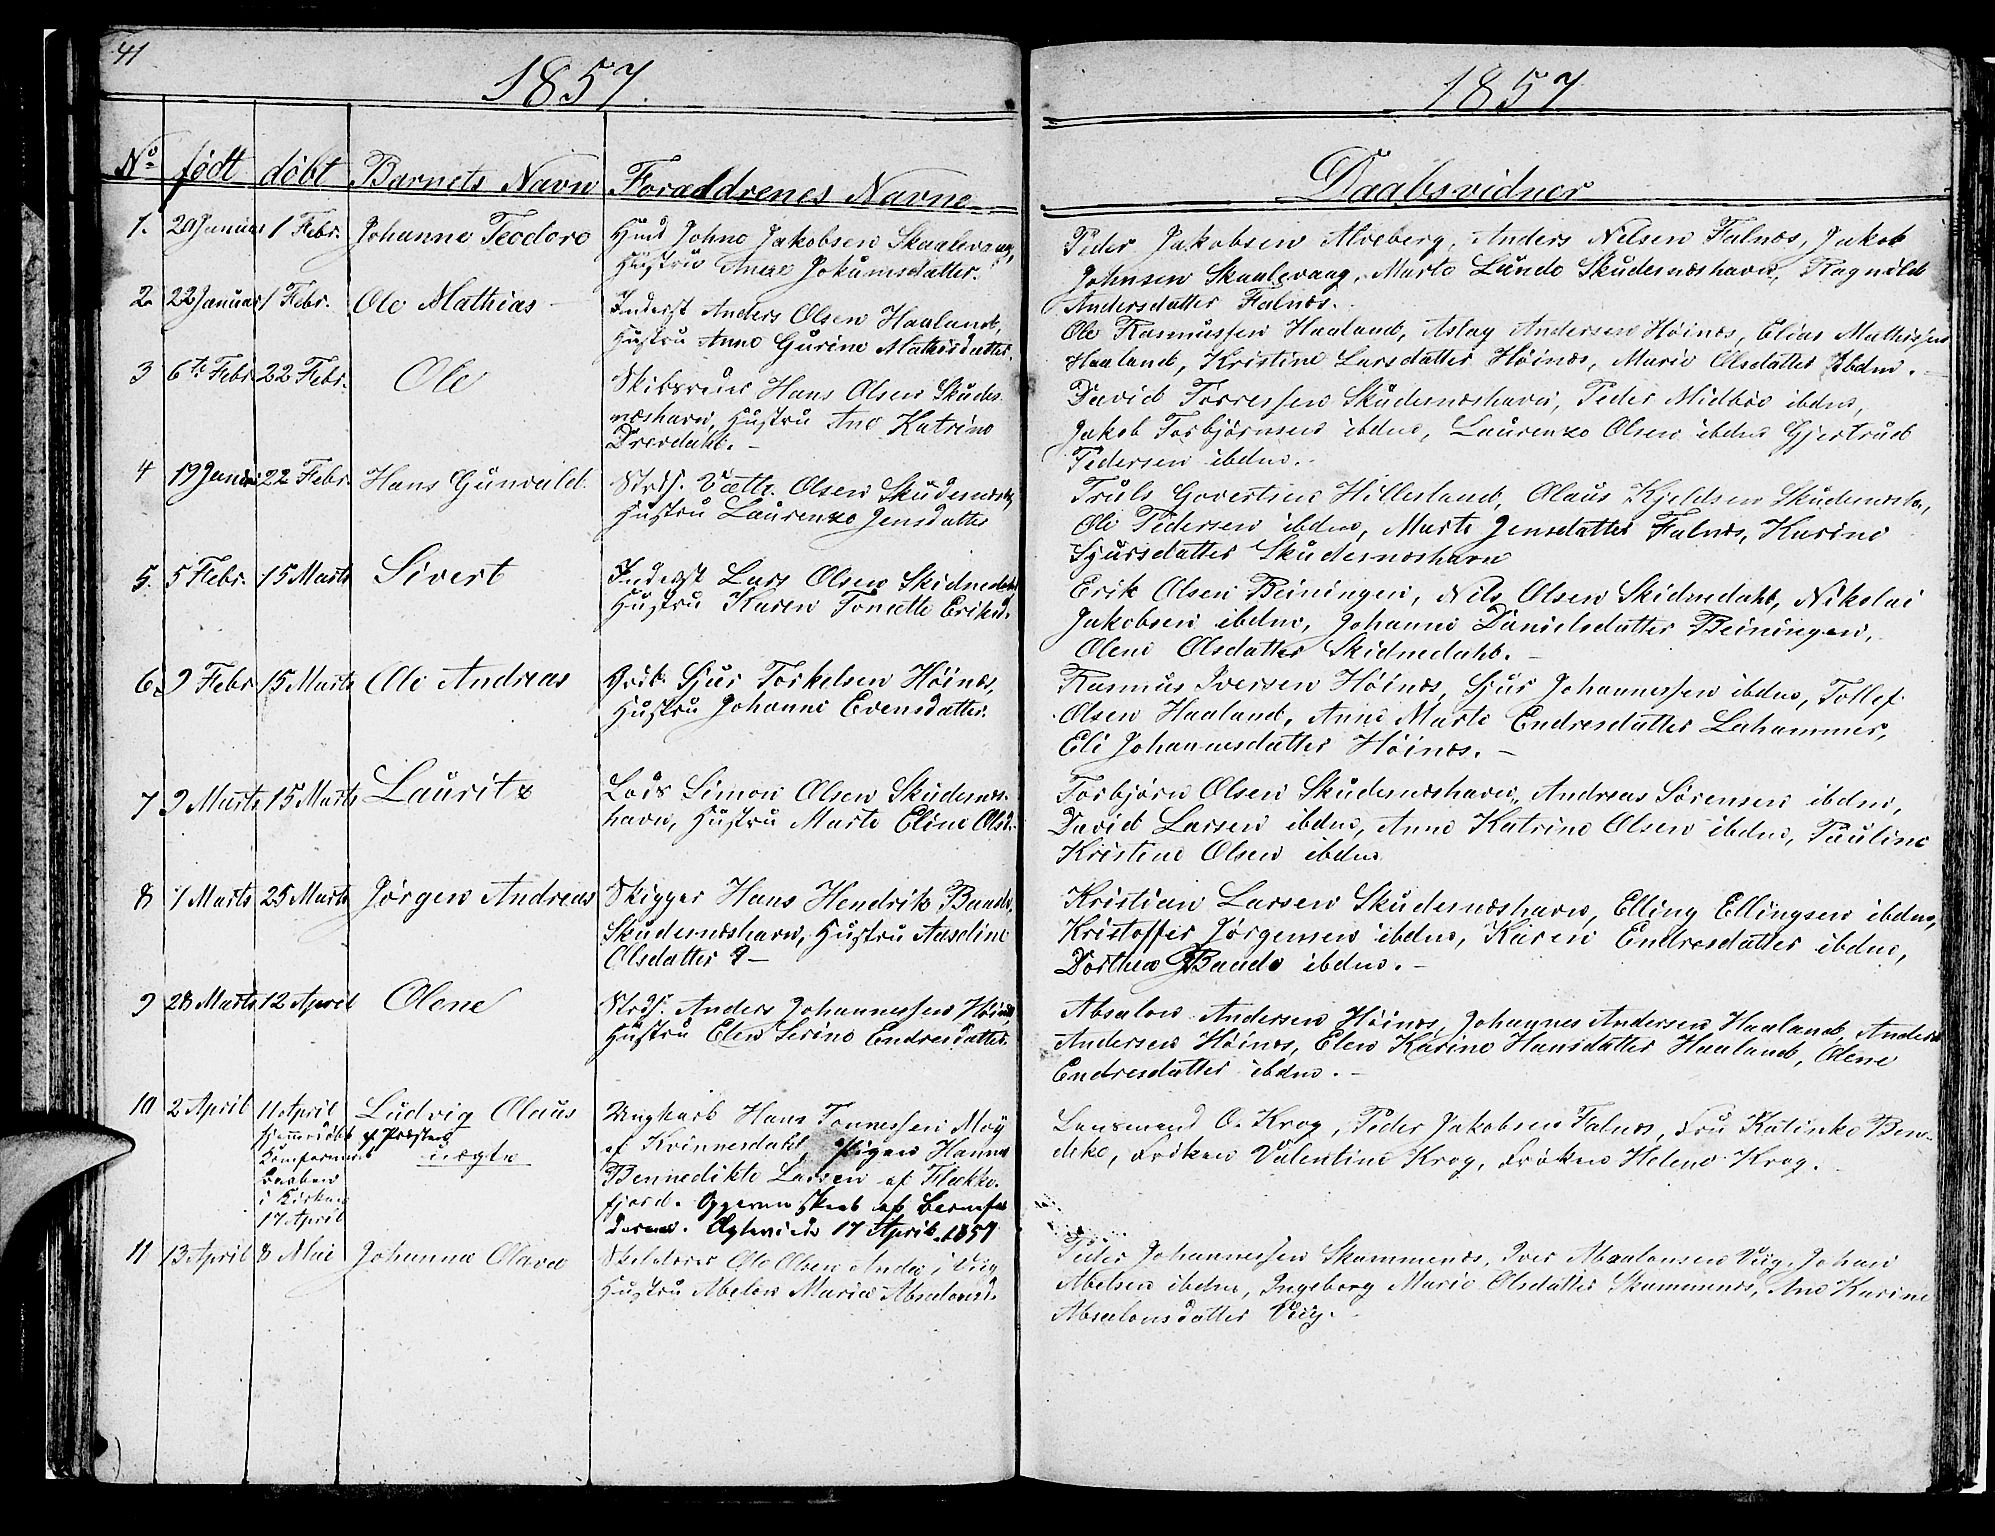 41
1857.
No født døbt Barnets Navn Forældrenes Navne
1. 20 Januar 1 Febr. Johanne Teodore Huusd Johne Jakobsen Skaalevaag,
Hustru Anne Jokumsdatter.
2. 22 Januar 1 Febr. Ole Mathias Inderst Anders Olsen Haaland,
Hustru Anne Gurine Mathisdatter.
3 6te Febr. 22 Febr. Ole Hans Olsen Skudes
næshavn, Hustru Ane Katrine
4 19 Januar 22 Febr. Hans Gunvald Strds. Olsen Skudesnæsh,
Hustru Laurenze Jensdatter
5. 5 Febr. 15 Marts Sivert Inderst Lars Olsen Skidnedahl
Hustru Karen Tonette Eriksd.
6. 9 Febr. 15 Marts Ole Andreas Sjur Torkelsen Höinæs,
Hustru Johanne Evensdatter.
7 9 Marts 15 Marts Lauritz Lods Simon Olsen Skudesnæs-
havn, Hustru Marte Eline Olsd.
8 1 Marts 25 Marts Jørgen Andreas Skipper Hans Hendrik Baade,
Skudesnæshavn, Hustru Aaseline
Olsdatter
9 28 Marts 12 April Olene Strds. Anders Johannessen Höinæs
Hustru Elen Serine Endresdatter.
10 2 April 11 April Ludvig Olaus Ungkarl Hans Tonnessen Moÿ
Hjemmedøbt af Præsten af Kvinnesdahl, Pigen Hanne
Konfermeret uægte Bennedikte Larsen af Flekke-
Daaben fjord. af Barnefa
i Kirken deren. Ægteviede 17 April 1857
17 April
11 13 April 8 Mai Johanne Olava Ole Olsen i Viig
Hustru Abelone Marie Absalonsd.
1857
Daabsvidner
Peder Jakobsen Alveberg, Anders Nelsen Falnæs, Jakob
Johnsen Skaalevaag, Marte Lunde Skudesnæshavn, Ragnild
Andersdatter Falnæs.
Ole Rasmussen Haaland, Aslag Andersen Höinæs, Elias Mathissen
Haaland, Kristine Larsdatter Höinæs, Marie Olsdatter ibdm.
David Torressen Skudesnæshavn, Peder Midbøe ibdm,
Jakob Torbjörnsen ibdm, Laurenze Olsen ibdm Gjertrud
Pedersen ibdm.
Truls Govertsen Hillesland, Olaus Kjeldsen Skudesnæsh,
Ole Pedersen ibdm, Marte Jensdatter Falnæs, Karine
Sjursdatter Skudesnæshavn
Erik Olsen Beiningen, Nils Olsen Skidnedahl, Nikolai
Jakobsen ibdm, Johanne Danielsdatter Beiningen,
Olene Olsdatter Skidnedahl.
Rasmus Iversen Höinæs, Sjur Johannessen ibdm, Tollef
Olsen Haaland, Anne Marte Endresdatter Lahammer,
Eli Johannesdatter Höinæs.
Torbjörn Olsen Skudesnæshavn, Andreas Sörensen ibdm,
David Larsen ibdm, Anne Katrine Olsen ibdm, Pauline
Kristine Olsen ibdm
Kristian Larsen Skudesnæshavn, Elling Ellingsen ibdm,
Kristoffer Jörgensen ibdm, Karen Endresdatter ibdm,
Dorthea Baade ibdm.
Absalon Andersen Höinæs, Johannes Andersen Haaland, Anders
Andersen Höinæs, Elen Karine Hansdatter Haaland, Olene
Endresdatter ibdm.
Lensmand O. Krog, Peder Jakobsen Falnæs, Fru Katinke Ben-
deke, Fröken Valentine Krog, Fröken Helene Krog.
Peder Johannessen Stammenæs, Iver Absalonsen Viig, Johan
Abelsen ibdm, Ingeborg Marie Olsdatter Stammenæs, Ane Karine
Absalonsdatter Viig.